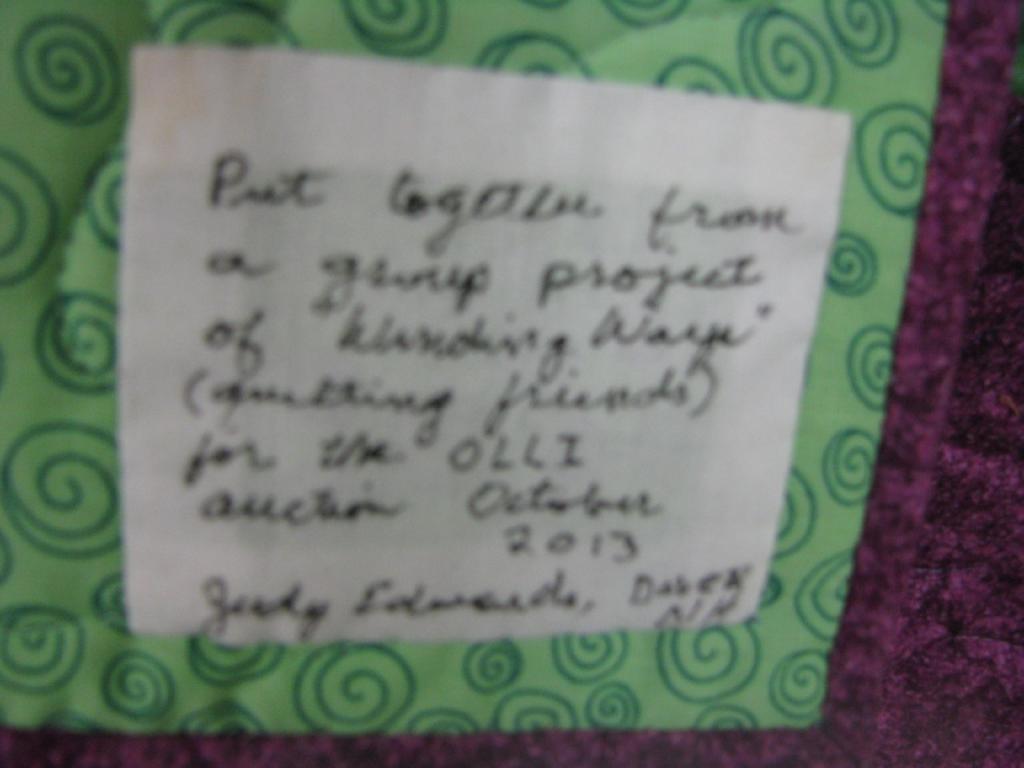 Put together from
a group project
of "Winding Ways"
(quilting friends)
for the OLLI
auction October
2013
Judy Edwards, Dover
NH